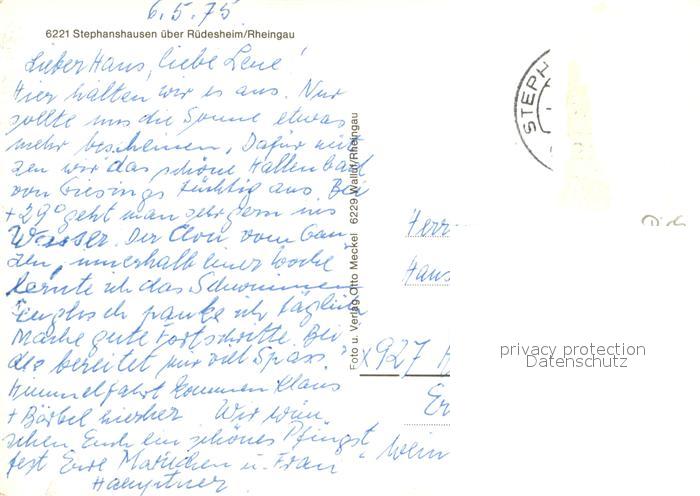 6.5.75
6221 Stephanshausen über Rüdesheim/Rheingau
Lieber Haus, liebe Lene!
Hier halten wir es aus. Nur
sollte uns die Sonne etwas
mehr bescheinen. Dafür nüt
zen wir das schöne Hallenbad
von Giesings tüchtig aus. Bei
+29° geht man sehr gern ins
Wasser. Der Clou vom Gan
zen, innerhalb einer Woche
lernte ich das Schwimmen
Englisch pauke ich täglich
Mache gute Fortschritte. Bei
des bereitet mir viel Spass.
Himmelfahrt kommen Klaus
+ Bärbel hierher. Wir wün
schen Euch ein schönes Pfingst
fest Eure u. Frau
Hauptner
Foto u. Verlag Otto Meckel 6229 Walluf/Rheingau
STEPH
Herr
Hans
X927
Er
Wein
privacy protection
Datenschutz